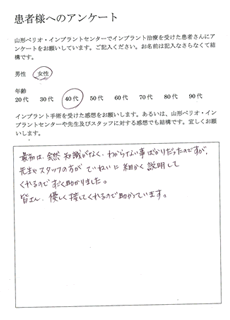 患者様へのアンケート
山形ペリオ・インプラントセンターでインプラント治療を受けた患者さんにア
ンケートをお願いしています。ご記入ください。お名前は記入なさらなくて結
構です。
男性 女性
年齢
20代 30代 40代 50代 60代 70代 80代 90代
インプラント手術を受けた感想をお願いします。あるいは、山形ペリオ・イン
プラントセンターや先生及びスタッフに対する感想でも結構です。宜しくお願
いします。
最初は、全然 知識がなく、わからない事ばかりだったのですが、
先生やスタッフの方が ていねいに 細かく 説明して
くれるので すごく助かりました。
皆さん、優しく接してくれるので助かっています。